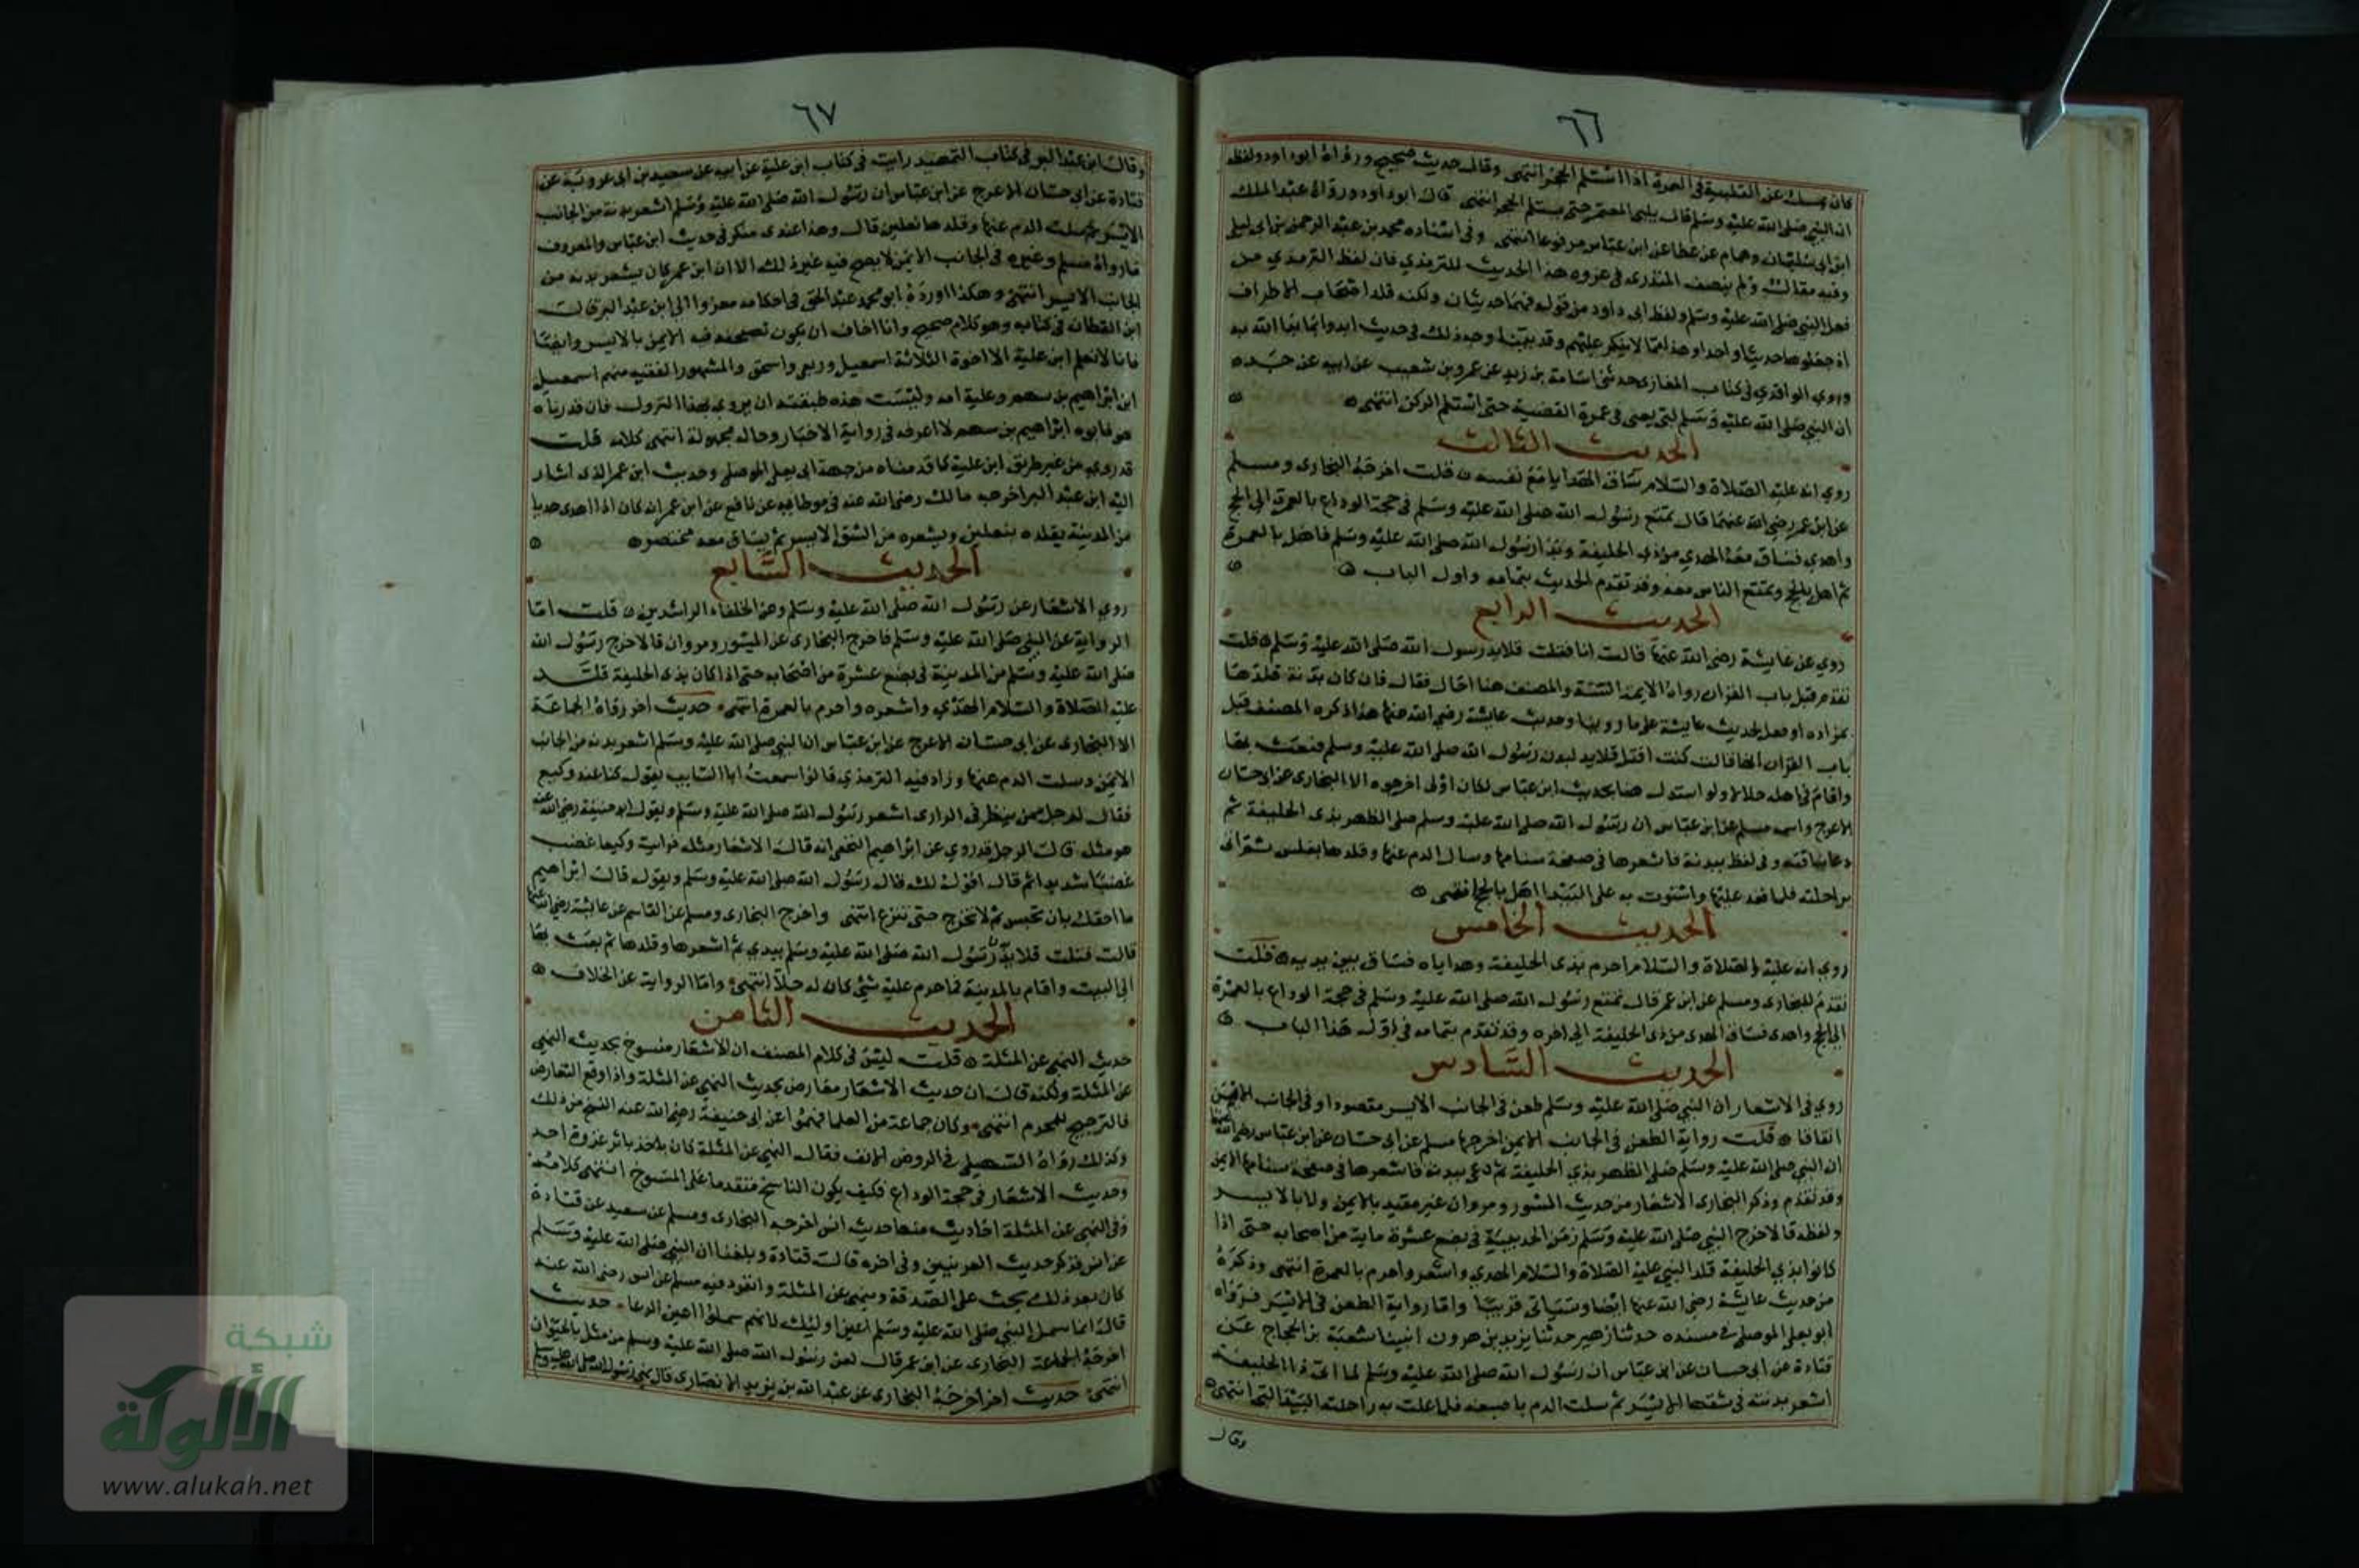 ٦٦
كان يمسك عن التلبية في العمرة اذا استلم الحجر انتهى وقال حديث صحيح ورواه ابوداود ولفظه
ان النبي صلى الله عليه وسلم قال يلبي المعتمر حتى يستلم الحجر انتهى قال ابوداود ورواه عبد الملك
ابن ابي سليمان وهمام عن عطا عن ابن عباس مرفوعا انتهى وفى اسناده محمد بن عبد الرحمن بن ابي ليلى
وفيه مقال ولم ينصف المنذرى في عزوه هذا الحديث للترمذي فان لفظ الترمذي من
فعل النبي صلى الله عليه وسلم ولفظ ابي داود من قوله فهما حديثان ولكنه قلد اصحاب الاطراف
اذ جعلوها حديثا واحدا وهذا مما لا ينكر عليهم وقد بينا وجه ذلك في حديث ابدوا بما بدا الله به
وروى الواقدي في كتاب المغازى حدثنى اسامة بن زيد عن عمرو بن شعيب عن ابيه عن جده
ان النبي صلى الله عليه وسلم لبى يعني في عمرة القضية حتى استلم الركن انتهى
الحديث الثالث
روي انه عليه الصلاة والسلام ساق الهدايا مع نفسه قلت اخرجه البخارى ومسلم
عن ابن عمر رضي الله عنهما قال تمتع رسول الله صلى الله عليه وسلم في حجة الوداع بالعمرة الى الحج
واهدي فساق معه الهدي من ذي الحليفة وبدا رسول الله صلى الله عليه وسلم فاهل بالعمرة
ثم اهل بالحج وتمتع الناس معه وقد تقدم الحديث بتمامه واول الباب
الحديث الرابع
روي عن عايشة رضي الله عنها قالت انا فتلت قلايد رسول الله صلى الله عليه وسلم قلت
تقدم قبل باب القران رواه الايمة الستة والمصنف هنا احال فقال فان كان بدنة قلدها
بمزاده او نعل لحديث عايشة على ما روينا وحديث عايشة رضي الله عنها هذا ذكره المصنف قبل
باب القران انها قالت كنت افتل قلايد لبدن رسول الله صلى الله عليه وسلم فبعث بها
واقام في اهله حلالا ولو استدل هنا بحديث ابن عباس لكان اولى اخرجوه الا البخارى عن ابي حسان
الاعرج واسمه مسلم عن ابن عباس ان رسول الله صلى الله عليه وسلم صلى الظهر بذى الحليفة ثم
دعا بناقته وفى لفظ ببدنة فاشعرها في صفحة سنامها وسال الدم عنها وقلدها بنعلين ثم اتى
براحلته فلما قعد عليها واستوت به على البيدا اهل بالحج انتهى
الحديث الخامس
روي انه عليه الصلاة والسلام احرم بذى الحليفة وهداياه تساق بين يديه قلت
تقدم للبخارى ومسلم عن ابن عمر قال تمتع رسول الله صلى الله عليه وسلم في حجة الوداع بالعمرة
الى الحج واهدى فساق الهدى من ذى الحليفة الى اخره وقد تقدم بتمامه في اول هذا الباب
الحديث السادس
روي في الاشعار ان النبي صلى الله عليه وسلم طعن في الجانب الايسر مقصودا وفى الجانب الايمن
اتفاقا قلت رواية الطعن في الجانب الايمن اخرجها مسلم عن ابي حسان عن ابن عباس رضي الله عنهما
ان النبي صلى الله عليه وسلم صلى الظهر بذي الحليفة ثم دعي ببدنة فاشعرها في صفحة سنامها الايمن
وقد تقدم وذكر البخارى الاشعار من حديث المسور ومروان غير مقيد بالايمن ولا بالايسر
ولفظه قالا خرج النبي صلى الله عليه وسلم زمن الحديبية في بضع عشرة ماية من اصحابه حتى اذا
كانوا بذي الحليفة قلد النبي عليه الصلاة والسلام الهدي واشعر واحرم بالعمرة انتهى وذكره
من حديث عايشة رضي الله عنها ايضا وسياتى قريبا واما رواية الطعن في الايسر فرواه
ابو يعلى الموصلى في مسنده حدثنا زهير حدثنا يزيد بن هرون انبينا شعبة بن الحجاج عن
قتادة عن ابي حسان عن ابن عباس ان رسول الله صلى الله عليه وسلم لما اتى ذا الحليفة
اشعر بدنته في شقها الايسر ثم سلت الدم باصبعه فلما علت به راحلته البيدا لبى انتهى
وقال
٦٧
وقال ابن عبد البر في كتاب التمهيد رايت في كتاب ابن علية عن ابيه عن سعيد بن ابى عروبة عن
قتادة عن ابى حسان الاعرج عن ابن عباس ان رسول الله صلى الله عليه وسلم اشعر بدنة من الجانب
الايسر ثم سلت الدم عنها وقلدها نعلين قال وهذا عندى منكر في حديث ابن عباس والمعروف
مارواه مسلم وغيره في الجانب الايمن لا يصح فيه غير ذلك الا ان ابن عمر كان يشعر بدنه من
الجانب الايسر انتهى وهكذا اورده ابو محمد عبد الحق في احكامه معزوا الى ابن عبد البر قال
ابن القطان في كتابه وهو كلام صحيح وانا اخاف ان يكون تصحف فيه الايمن بالايسر وايضا
فانا لا نعلم ابن علية الا اخوة الثلاثة اسمعيل وربعى واسحق والمشهور الفقيه منهم اسمعيل
ابن ابراهيم بن سهم وعلية امه وليست هذه طبقته ان يروى بهذا النزول فان قدرناه
هو فابوه ابراهيم بن سهم لا اعرفه في رواية الاخبار وحاله مجهولة انتهى كلامه قلت
قد روي من غير طريق ابن علية كما قدمناه من جهة ابى يعلى الموصلى وحديث ابن عمر الذى اشار
اليه ابن عبد البر اخرجه مالك رضي الله عنه في موطايه عن نافع عن ابن عمر انه كان اذا اهدى هديا
من المدينة يقلده بنعلين ويشعره من الشق الايسر ثم يساق معه مختصر
الحديث السابع
روي الاشعار عن رسول الله صلى الله عليه وسلم وعن الخلفاء الراشدين قلت اما
الرواية عن النبي صلى الله عليه وسلم فاخرج البخارى عن المسور ومروان قالا خرج رسول الله
صلى الله عليه وسلم من المدينة في بضع عشرة من اصحابه حتى اذا كان بذى الحليفة قلد
عليه الصلاة والسلام الهدي واشعره واحرم بالعمرة انتهى حديث اخر رواه الجماعة
الا البخارى عن ابى حسان الاعرج عن ابن عباس ان النبي صلى الله عليه وسلم اشعر بدنه من الجانب
الايمن وسلت الدم عنها وزاد فيه الترمذي قالوا سمعت ابا السايب يقول كنا عند وكيع
فقال لرجل ممن ينظر في الراى اشعر رسول الله صلى الله عليه وسلم ويقول ابو حنيفة رضي الله عنه
هو مثله قال الرجل قد روي عن ابراهيم النخعى انه قال الاشعار مثله فرايت وكيعا غضب
غضبا شديدا ثم قال اقول لك قال رسول الله صلى الله عليه وسلم وتقول قال ابراهيم
ما احقك بان تحبس ثم لا تخرج حتى تنزع انتهى واخرج البخارى ومسلم عن القاسم عن عايشة رضي الله عنها
قالت فتلت قلايد بدن رسول الله صلى الله عليه وسلم بيدي ثم اشعرها وقلدها ثم بعث بها
الى البيت واقام بالمدينة فما حرم عليه شئ كان له حلا انتهى واما الرواية عن الخلاف
الحديث الثامن
حديث النهي عن المثلة قلت ليس في كلام المصنف ان الاشعار منسوخ بحديث النهي
عن المثلة ولكنه قال ان حديث الاشعار معارض بحديث النهي عن المثلة واذا وقع التعارض
فالترجيح للمحرم انتهى وكان جماعة من العلما فهموا عن ابى حنيفة رضي الله عنه النسخ من ذلك
وكذلك رواه السهيلي في الروض الانف فقال النهي عن المثلة كان باحد باثر غزوة احد
وحديث الاشعار في حجة الوداع فكيف يكون الناسخ متقدما على المنسوخ انتهى كلامه
وفى النهي عن المثلة احاديث منها حديث انس اخرجه البخارى ومسلم عن سعيد عن قتادة
عن انس فذكر حديث العرنيين وفى اخره قال قتادة وبلغنا ان النبي صلى الله عليه وسلم
كان بعد ذلك يحث على الصدقة وينهى عن المثلة وانفرد فيه مسلم عن انس رضي الله عنه
قال انما سمل النبي صلى الله عليه وسلم اعين اوليك لانهم سملوا اعين الرعا حديث
اخرجه الجماعة البخارى عن ابن عمر قال لعن رسول الله صلى الله عليه وسلم من مثل بالحيوان
انتهى حديث اخر اخرجه البخارى عن عبد الله بن يزيد الانصارى قال نهى رسول الله صلى الله عليه وسلم
شبكة
الألوكة
www.alukah.net